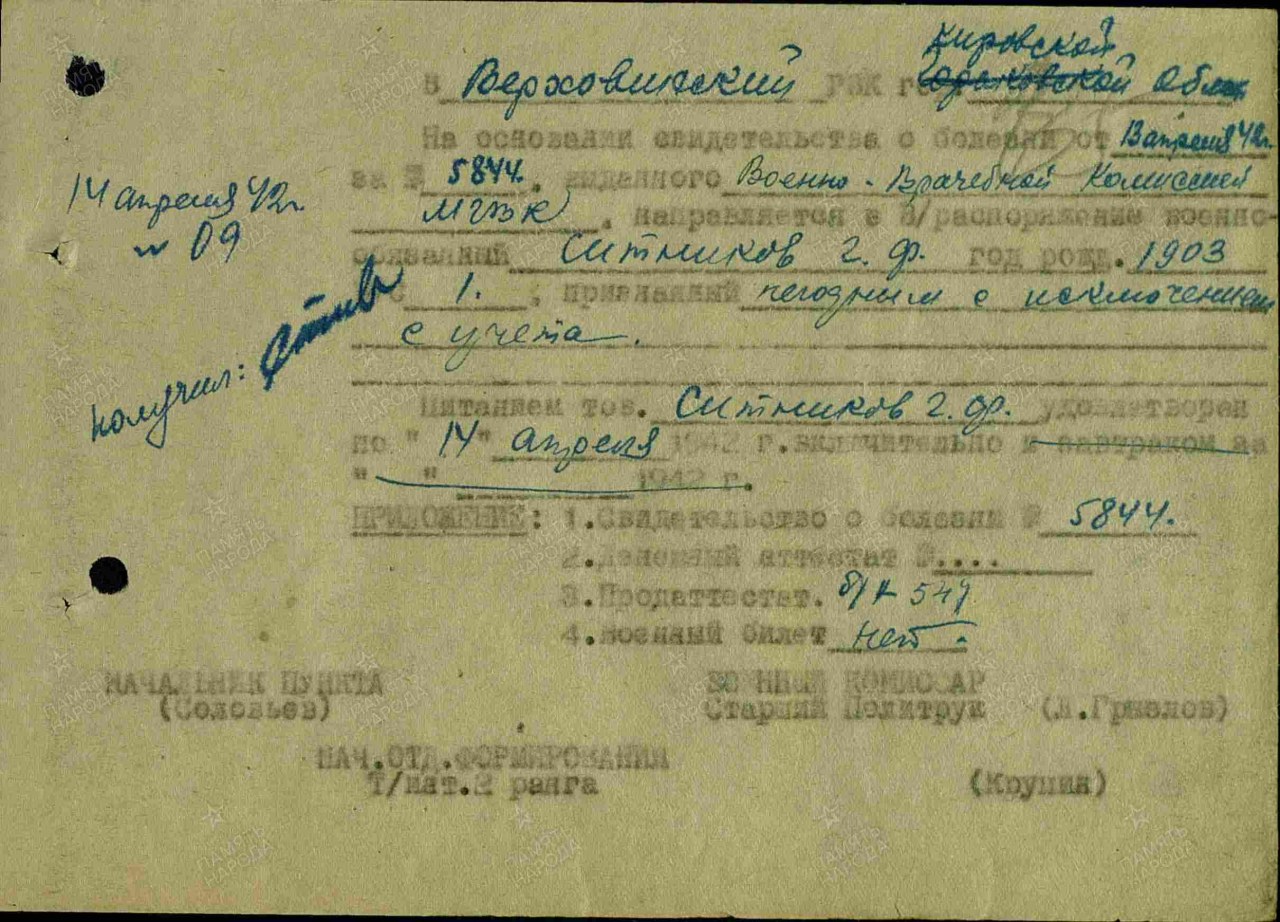 Кировской
В Верховинский РВК го Горьковской Облас
На основании свидетельства о болезни от 13 апреля 42 г.
за № 5844. , выданного Военно-Врачебной Комиссией
14 апреля 42 г.
МГВК , направляется в В/распоряжение военно-
№ 09
обязанный Ситников Г. Ф. год рожд. 1903
1. , признанный негодным с исключением
с учета.
получил:
Питанием тов. Ситников Г. Ф. удовлетворен
по "14" апреля 1942 г. включительно и завтраком на
" " 1942 г.
ПРИЛОЖЕНИЕ: 1.Свидетельство о болезни № 5844.
2.Денежный аттестат №....
3.Продаттестат. б/н 547
4.Военный билет нет.
НАЧАЛЬНИК ПУНКТА
(Соловьев)
ВОЕННЫЙ КОМИССАР
Старший Политрук
НАЧ.ОТД.ФОРМИРОВАНИЯ
Т/инт.2 ранга (Крупин)
ПАМЯТЬ НАРОДА